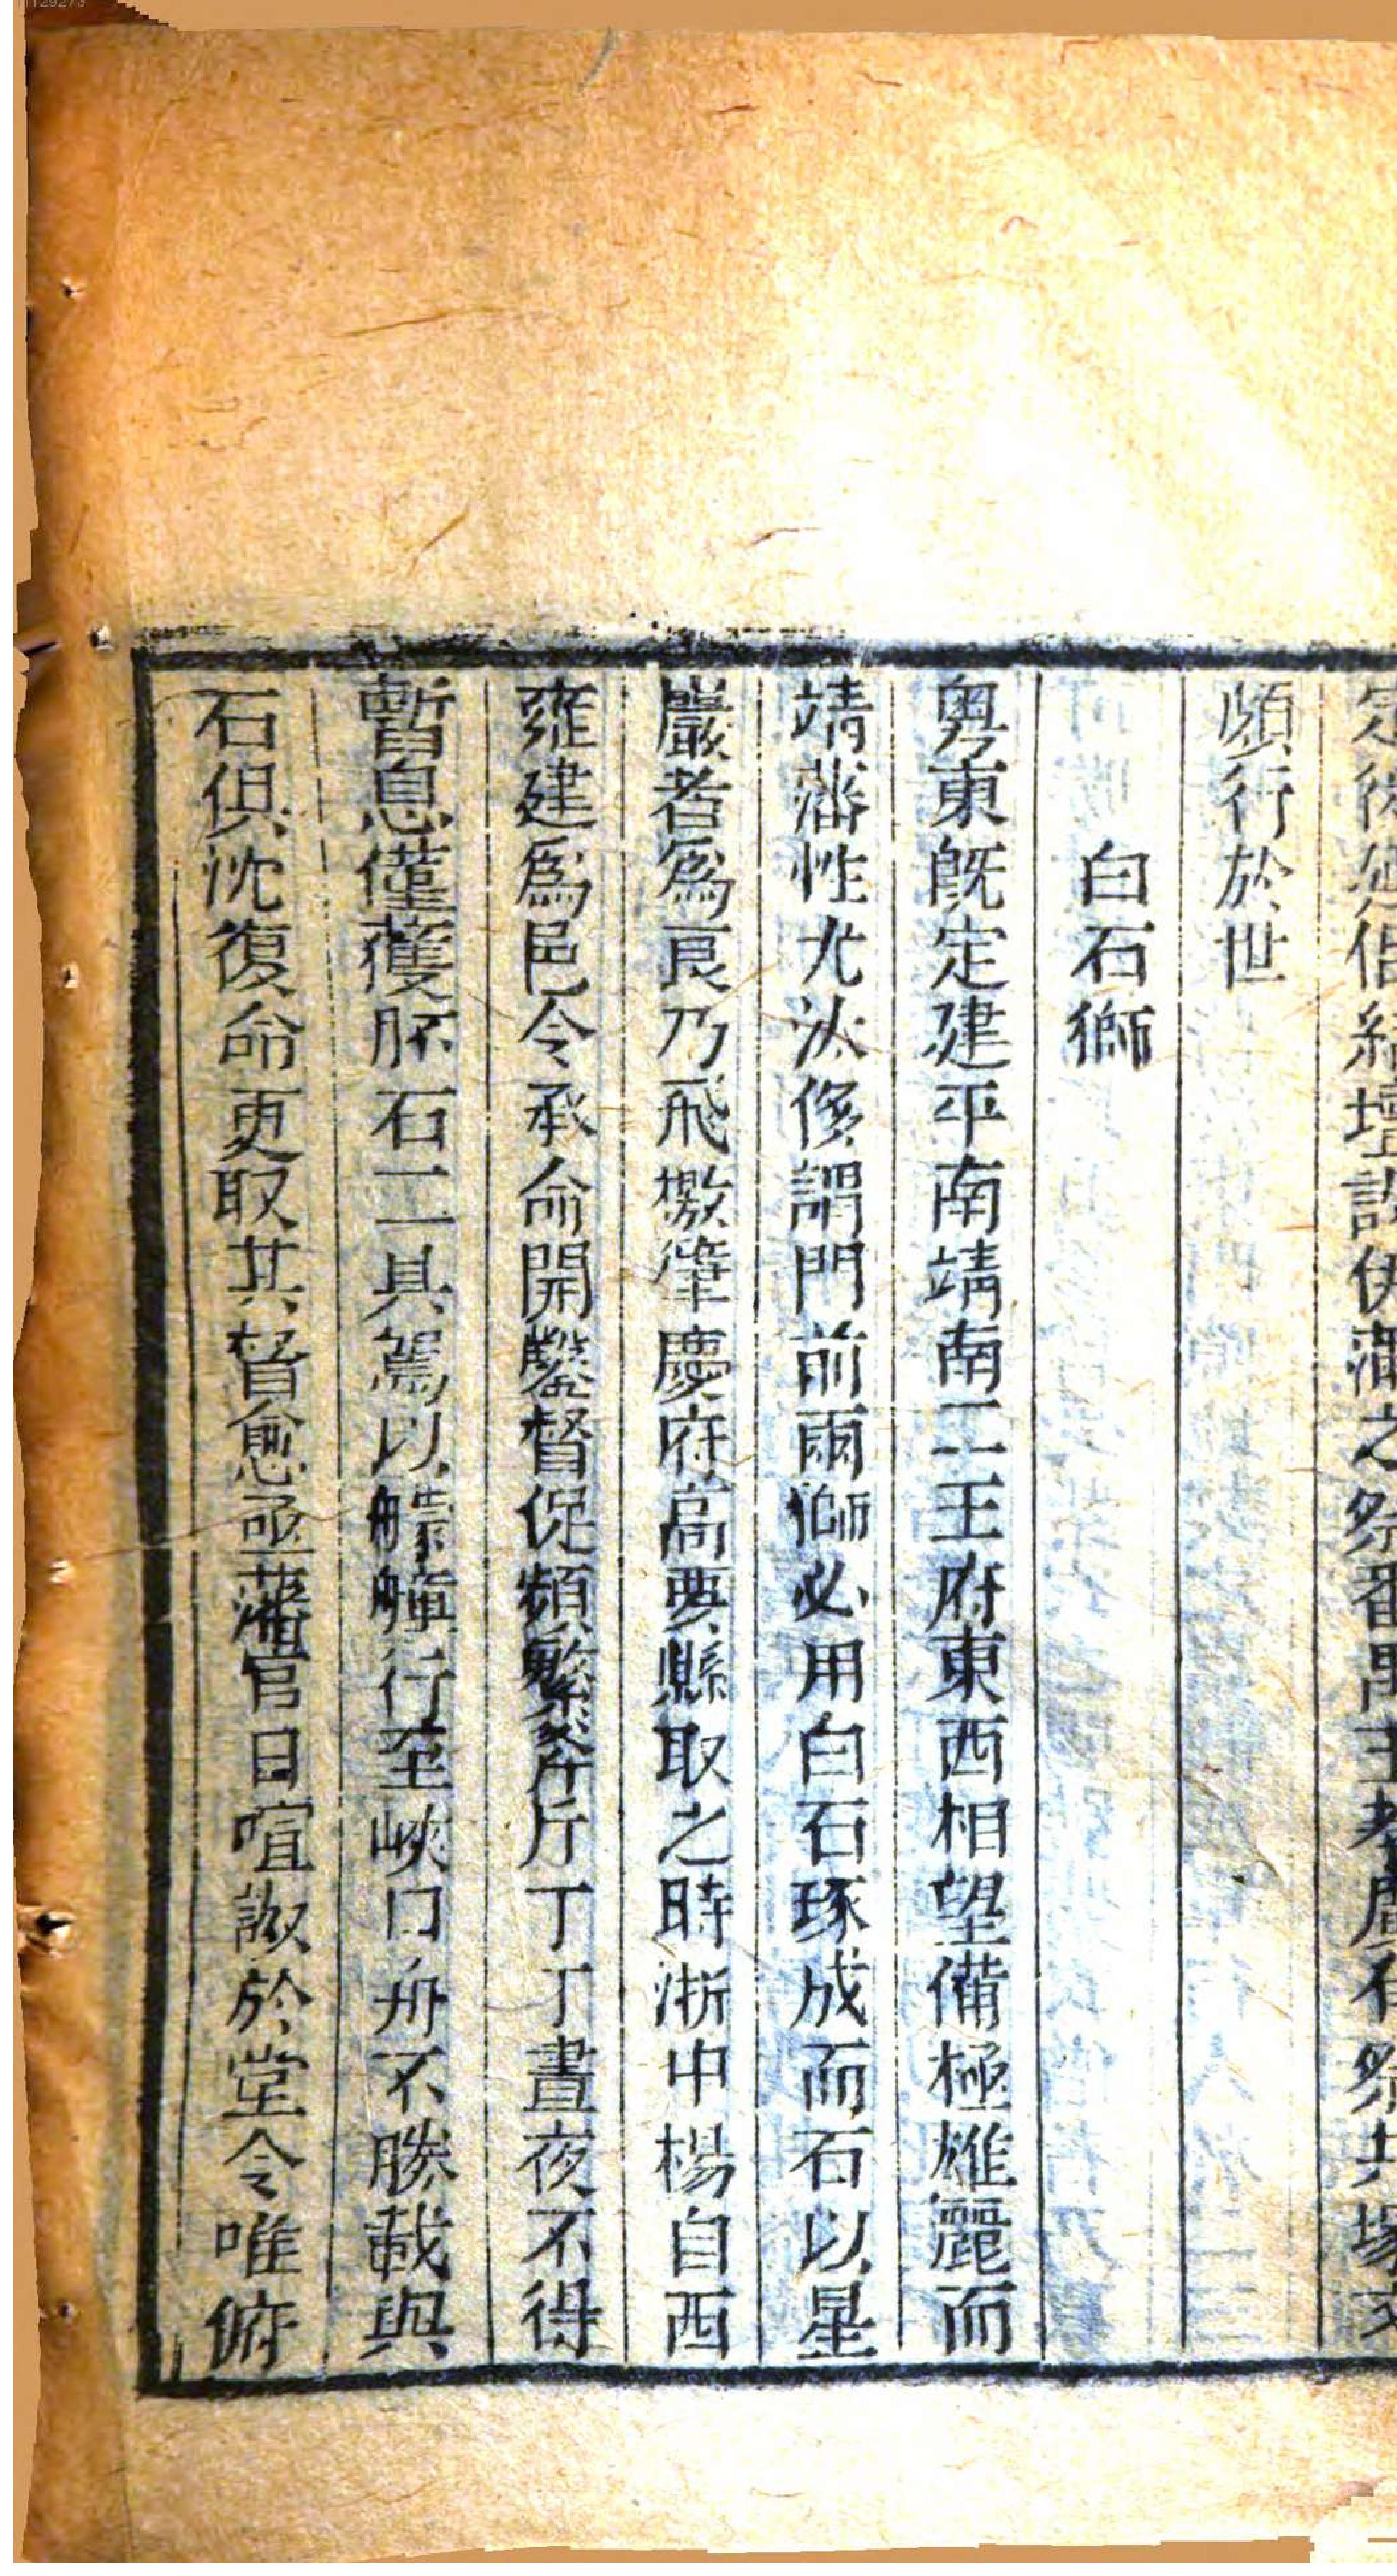 頗行於世
白石獅
粤東旣定建平南靖南二王府東西相望備極雄麗而
靖藩性尤汰侈謂門前兩獅必用白石琢成而石以星
巖者爲良乃飛檄肇慶府高要縣取之時浙中楊自西
雍建爲邑令承命開鑿督促頻繁斧斤丁丁晝夜不得
暫息僅獲胚石二具駕以艨艟行至峽口舟不勝載與
石俱沈復命更取其督愈亟藩官日喧譈於堂令唯俯